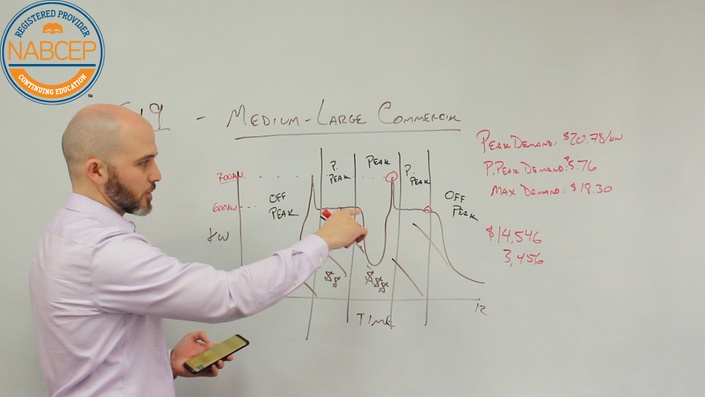 REGISTERED PROVIDER
NABCEP
CONTINUING EDUCATION
TM
E19 - MEDIUM-LARGE COMMERCIAL
PEAK DEMAND: $20.78/KW
P. PEAK DEMAND: $5.76
MAX DEMAND: $18.30
P. PEAK
PEAK
P. PEAK
700KW
OFF PEAK
OFF PEAK
600KW
KW
$14,546
3,456
$$
$$$
TIME
12